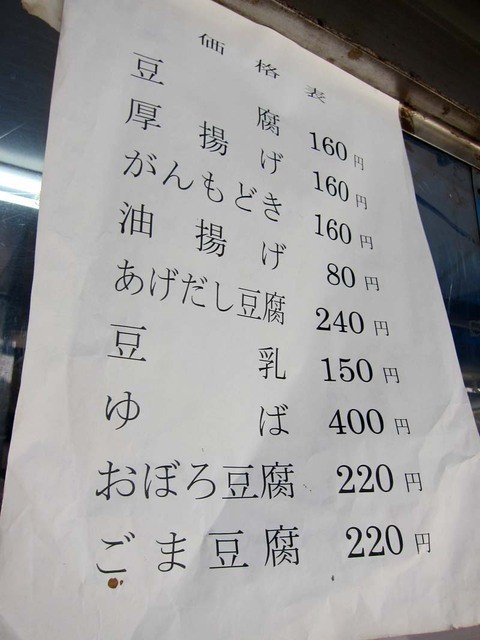 価格表
豆腐 160円
厚揚げ 160円
がんもどき 160円
油揚げ 80円
あげだし豆腐 240円
豆乳 150円
ゆば 400円
おぼろ豆腐 220円
ごま豆腐 220円